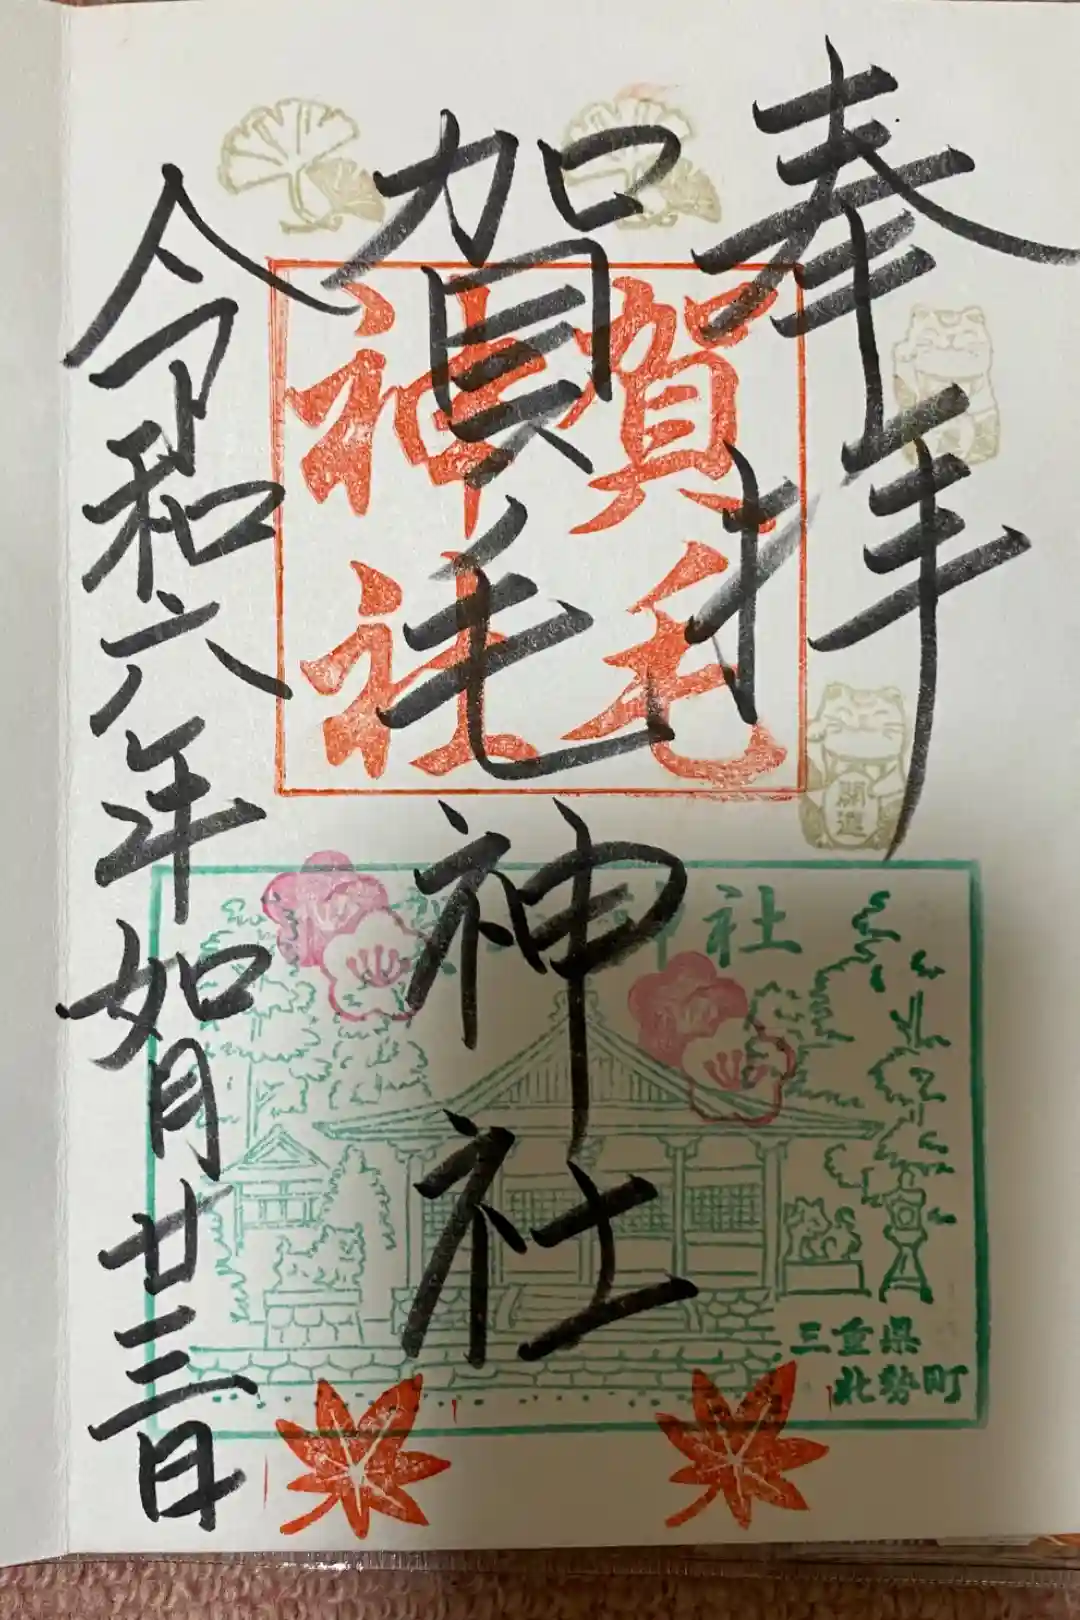 奉拝
賀毛神社
令和六年如月廿三日
賀毛
神社
開運
神社
三重県
北勢町